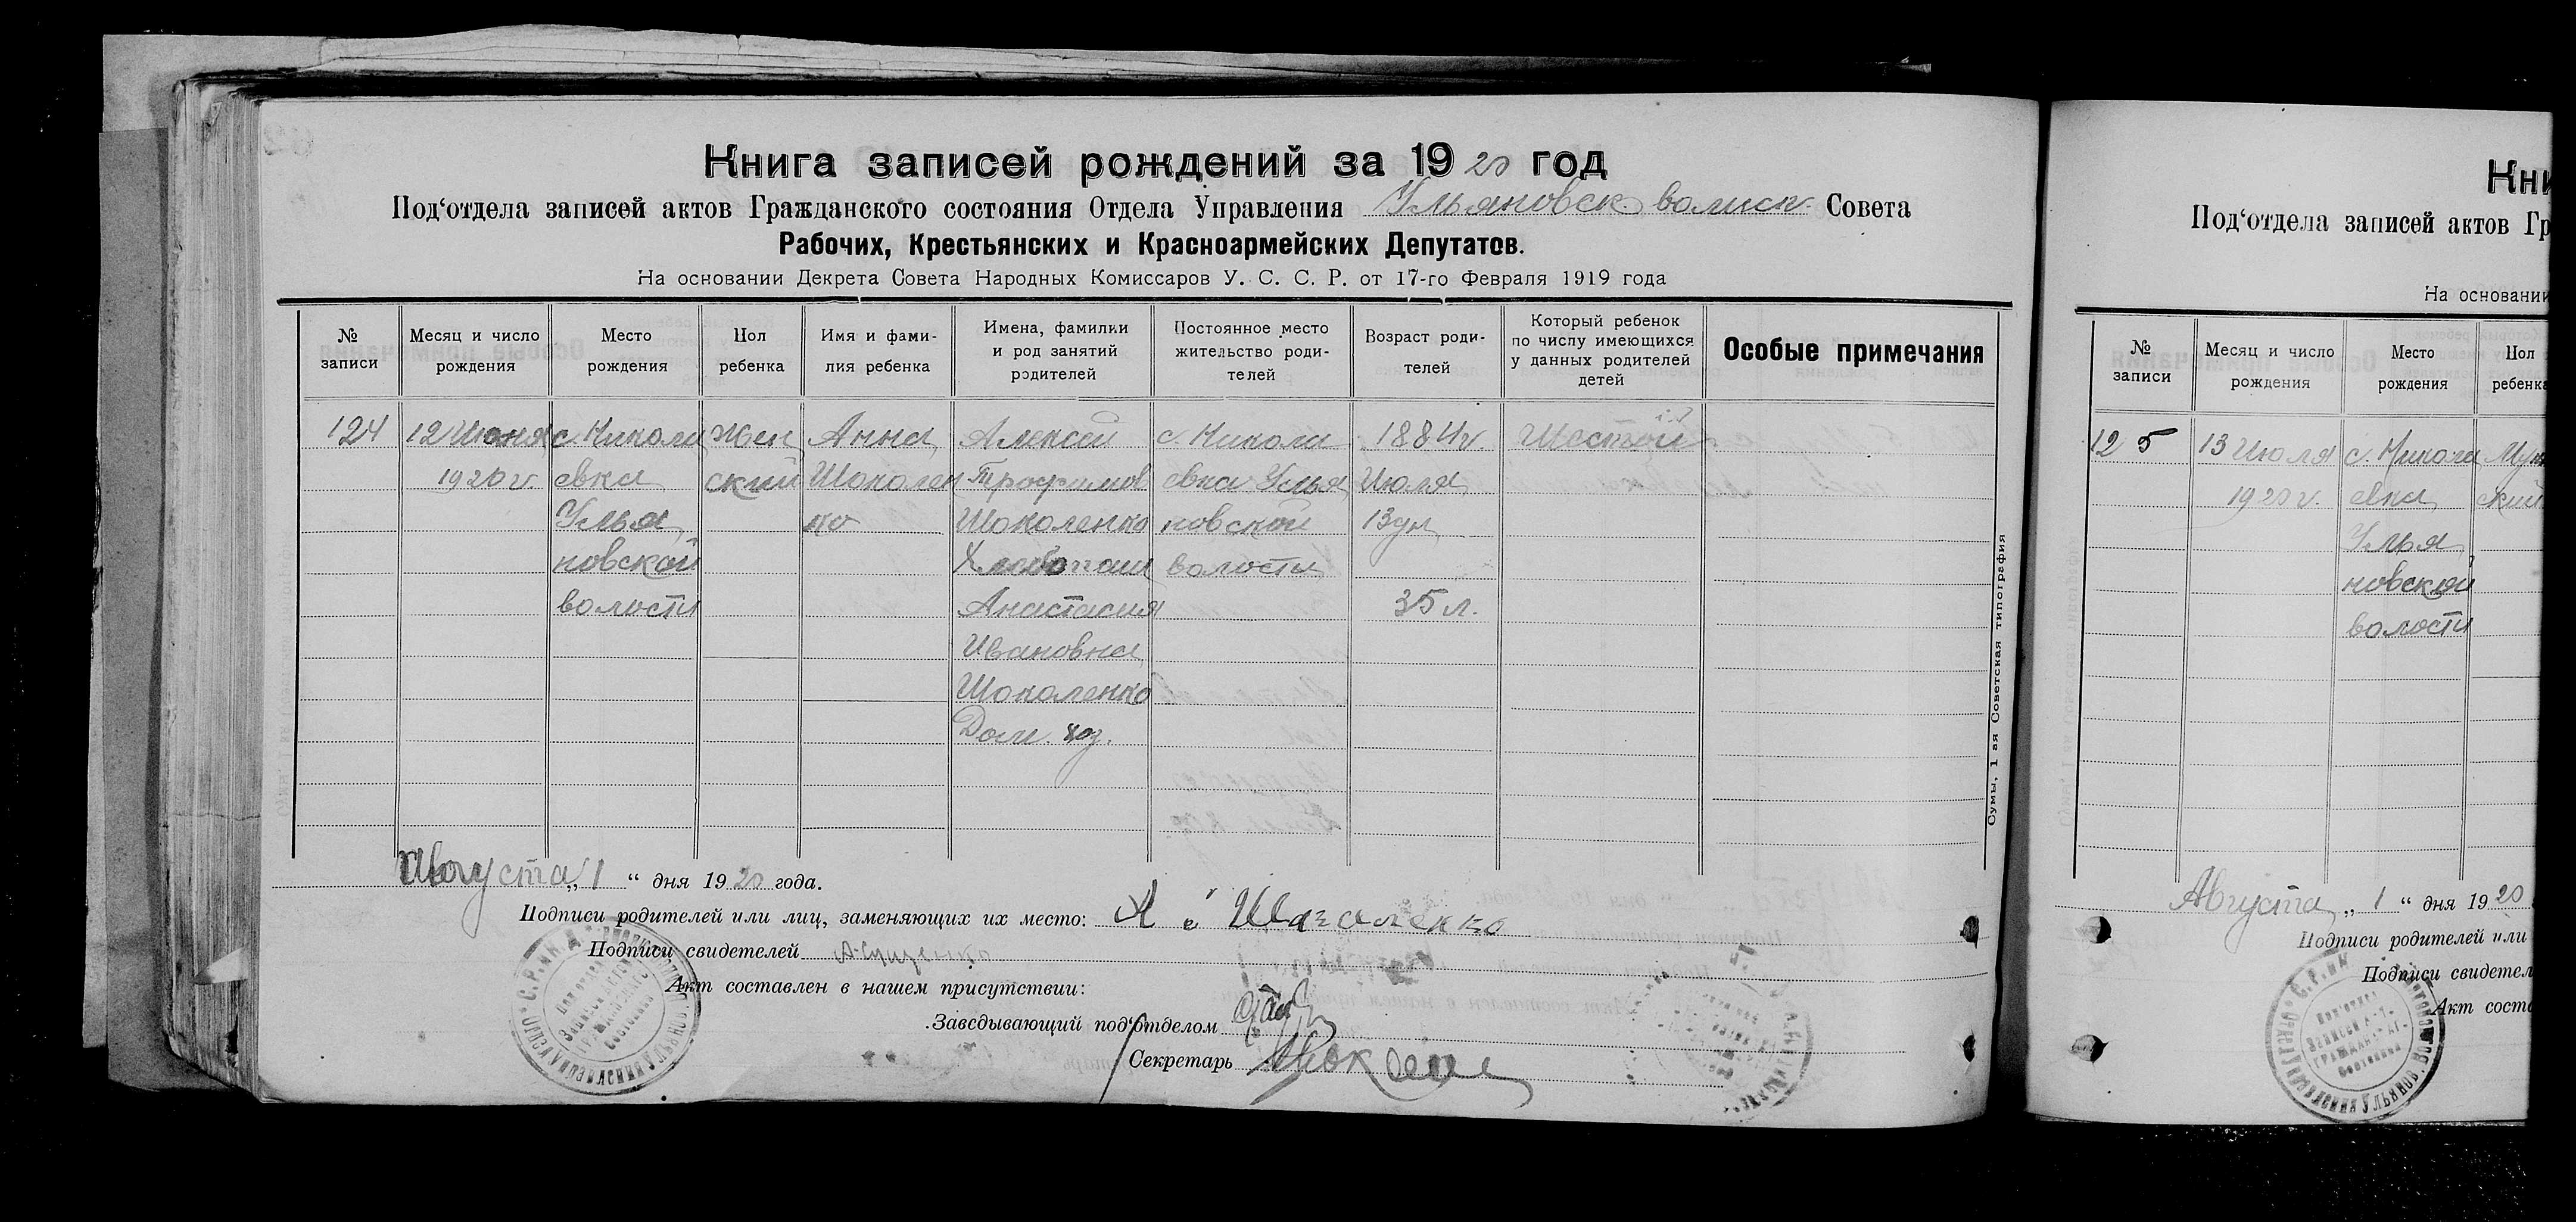 Книга записей рождений за 1920 год
Под‘отдела записей актов Гражданского состояния Отдела Управления Ульяновск. волиск. Совета
Рабочих, Крестьянских и Красноармейских Депутатов.
На основании Декрета Совета Народных Комиссаров У. С. С. Р. от 17-го Февраля 1919 года
№ записи
Месяц и число рождения
Место рождения
Пол ребенка
Имя и фамилия ребенка
Имена, фамилии и род занятий родителей
Постоянное место жительство родителей
Возраст родителей
Который ребенок по числу имеющихся у данных родителей детей
Особые примечания
124
12 Июня
1920 г.
с. Никола
евка
Улья
новской
волости
Жен
ский
Анна
Шоколен
ко
Алексей
Трофимов
Шоколенко
Хлебопаш
Анастасия
Ивановна
Шоколенко
Дом. хоз.
с. Никола
евка Улья
новской
волости
1884 г.
Июля
13 дня
35 л.
Шестой
Сумы, 1 ая Советская типография
Августа „ 1 “ дня 1920 года.
Подписи родителей или лиц, заменяющих их место:
Подписи свидетелей
Акт составлен в нашем присутствии:
Заведывающий под‘отделом
Секретарь
Кни
Под‘отдела записей актов Гр
На основании
№ записи
Месяц и число рождения
Место рождения
Пол ребенка
125
13 Июля
1920 г.
с. Никола
евка
Улья
новской
волости
Муж
ский
Августа „ 1 “ дня 1920
Подписи родителей или
Подписи свидетел
Акт соста